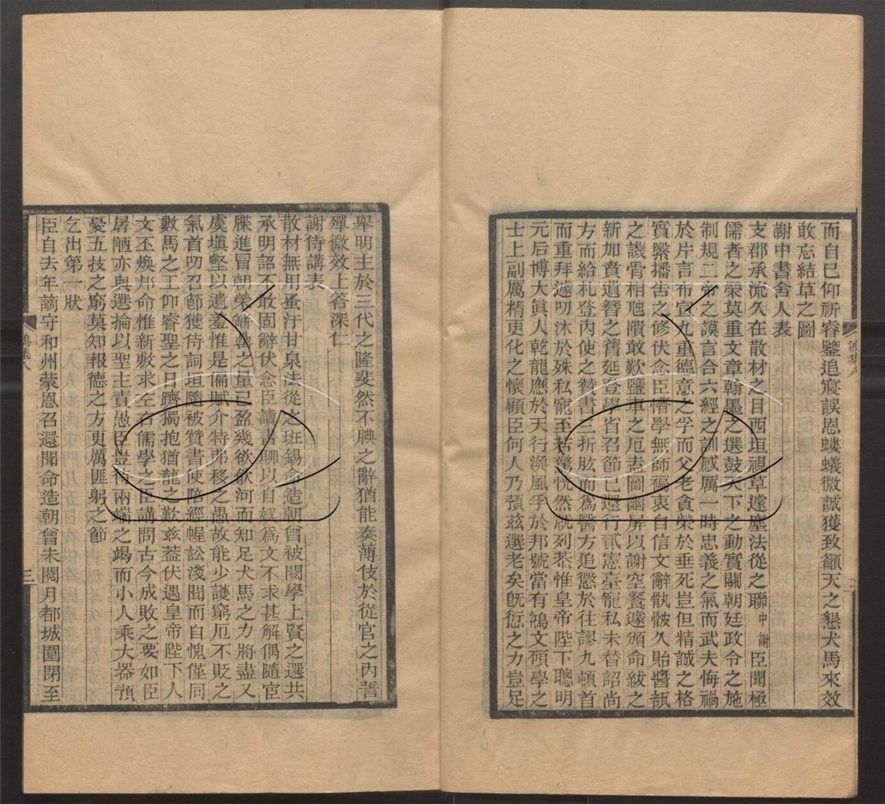 而自已仰祈睿鑒追寢誤恩螻蟻微誠獲致籲天之懇犬馬來效
敢忘結草之圖
謝中書舍人表
支郡承流久在散材之目西垣視草遽塵法從之聯中謝臣聞極
儒者之榮莫重文章翰墨之選鼓天下之動實關朝廷政令之施
制規二帝之謨言合六經之訓感厲一時忠義之氣而武夫悔禍
於片言布宣九重德意之孚而父老貪榮於垂死豈但精誠之格
實繄播告之修伏念臣懵學無師褊衷自信文辭骩骳久貽醬瓿
之譏骨相虺隤敢歎鹽車之厄素圖屏以謝空餐遽頒命紱之
新加賁遺簪之舊延登學省召節已還行貳憲臺寵私未替詔尚
方而給札登內使之贊書三折肱而為醫方追愆於往謬九頓首
而重拜遽叨沐於殊私寵至若驚恍然就列恭惟皇帝陛下聰明
元后博大真人乾龍應於天行渙風孚於邦號當有鴻文碩學之
士上副厲精更化之懷顧臣何人乃預茲選老矣既愆之力豈足
舉明主於三代之隆斐然不腆之辭猶能奏薄伎於從官之內誓
殫微效上答深仁
謝侍講表
散材無用蚤汙甘泉法從之班錫命造朝曾被閣學上賢之選共
承明詔不敢固辭伏念臣讀書聊以自娛為文不求甚解偶隨宦
牒進冒朝榮餅罄之量已盈幾欲飲河而知足犬馬之力將盡又
虞填壑以遺羞惟是偏賦介特弗移之愚故能少謎窮厄不貶之
氣首叨召節獲侍詞垣隨被贊書使陪經幄訟淺聞而自愧僅同
數馬之工仰睿聖之日躋獨抱猶龍之歎茲蓋伏遇皇帝陛下人
文丕煥邦命惟新敷求左右儒學之臣講問古今成敗之要如臣
孱陋亦與選掄以聖主責愚臣豈待兩端之竭而小人乘大器預
憂五技之窮莫知報德之方更厲匪躬之節
乞出第一狀
臣自去年謫守和州蒙恩召還聞命造朝曾未閱月都城圍閉至
三